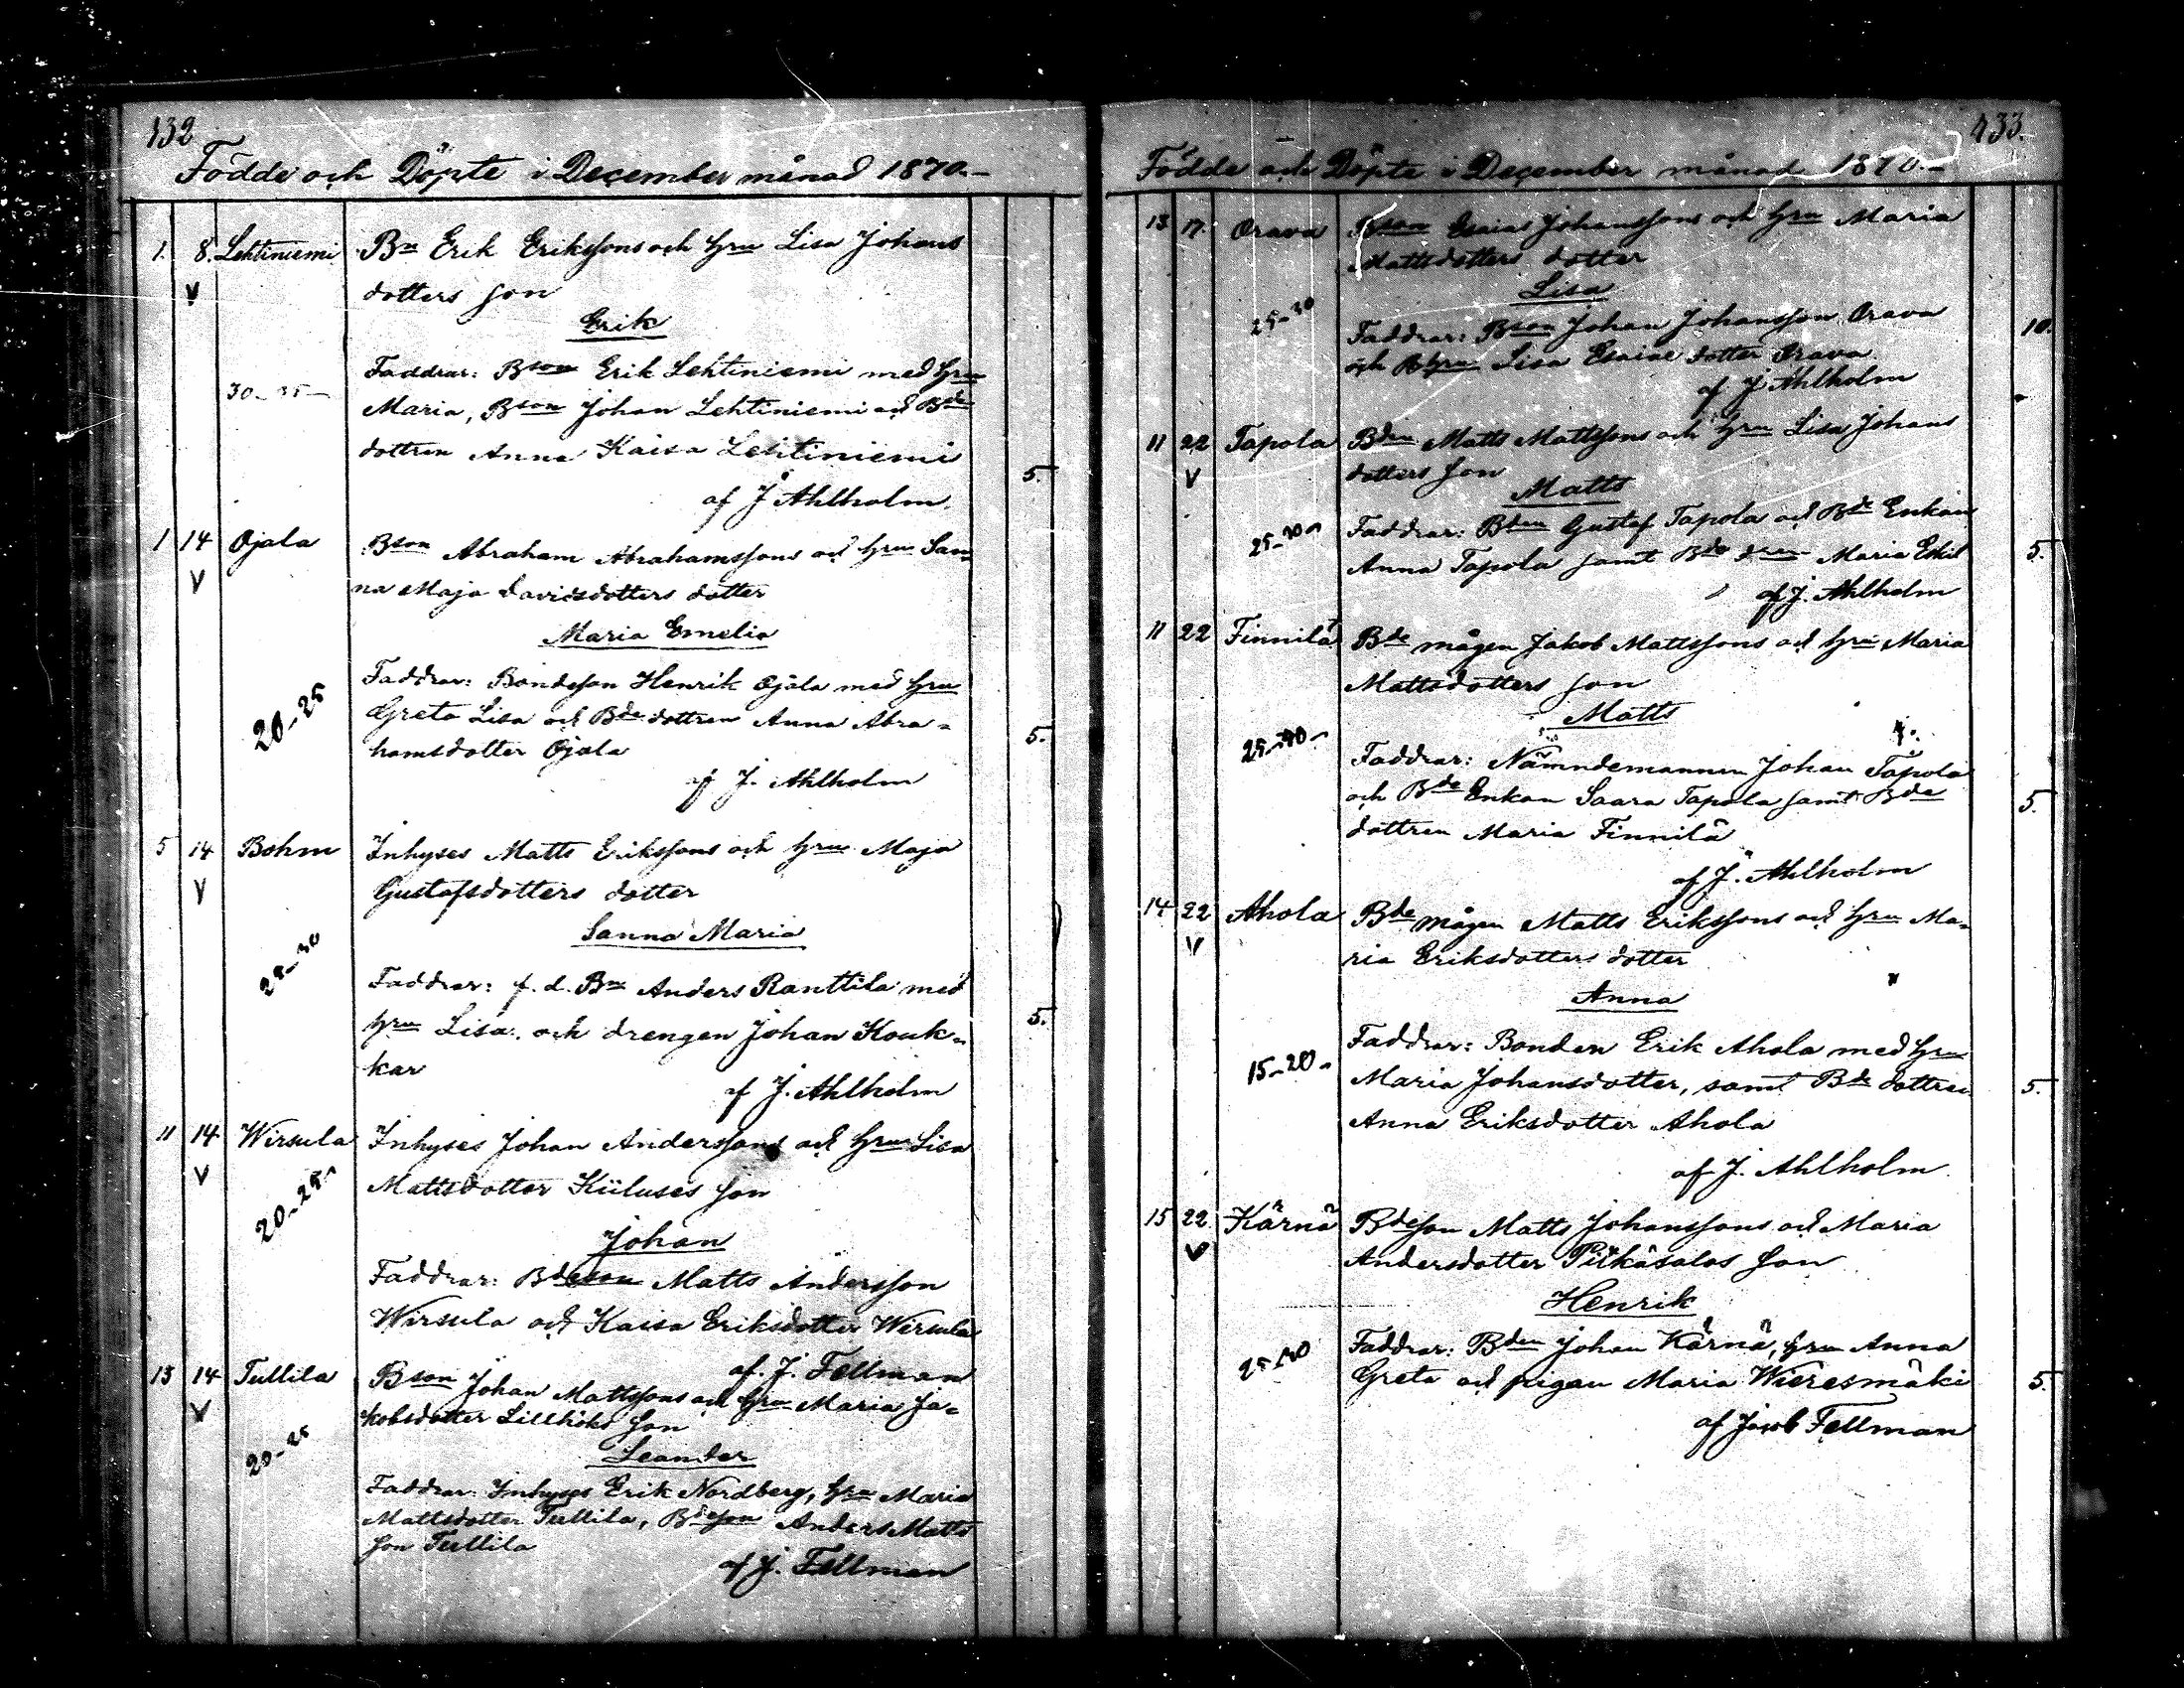 132
Födde och Döpte i December månad 1870.-
1. 8. Lehtiniemi Bn Erik Erikssons och hru Lisa Johans
V dotters son
Erik
Faddrar: Bson Erik Lehtiniemi med hru
30-35- Maria, Bson Johan Lehtiniemi och Bde
dottren Anna Kaisa Lehtiniemi
5.
af J Ahlholm.
1 14 Ojala Bson Abraham Abrahamssons och hru San-
V na Maja Davidsdotters dotter
Maria Emelia
Faddrar: Bondeson Henrik Ojala med hru
20-25 Greta Lisa och Bde dottren Anna Abra-
hamsdotter Ojala 5.
af J. Ahlholm
5 14 Bohm Inhyses Matts Erikssons och hru Maja
V Gustafsdotters dotter
Sanna Maria
25-30 Faddrar: f. d. Bn Anders Ranttila med
hru Lisa. och drengen Johan Kouk- 5.
kar
af J. Ahlholm
11 14 Wirsula Inhyses Johan Anderssons och hru Lisa
V Mattsdotter Kiiluses son
20-25-
Johan
Faddrar: Bdeson Matts Andersson
Wirsula och Kaisa Eriksdotter Wirsula
af. J. Fellman
13 14 Tullila Bson Johan Mattssons och hru Maria Ja-
V kobsdotter son
20-25 Leander
Faddrar: Inhyses Erik Nordberg, hru Maria
Mattsdotter Tullila, Bdeson Anders Matts
son Tullila
af J. Fellman
433.
Födde och Döpte i December månad 1870.-
13 17. Orava Bson Esaias Johanssons och hru Maria
Mattsdotters dotter
Lisa
25-30 Faddrar: Bson Johan Johansson Orava 10.
och hru Lisa Esaiae dotter Orava
af J Ahlholm
11 22 Tapola Bden Matts Mattssons och hru Lisa Johans
V dotters son
Matts
25-30- Faddrar: Bden Gustaf Tapola och Bde Enkan
Anna Tapola samt Bde dren Maria 5.
af J. Ahlholm
11 22 Finnilä Bde mågen Jakob Mattssons och hru Maria
Mattsdotters son
Matts
Faddrar: Nämndemannen Johan Tapola
och Bde Enkan Saara Tapola samt Bde 5.
dottren Maria Finnilä
af J. Ahlholm
14 22 Ahola Bde mågen Matts Erikssons och hru Ma-
V ria Eriksdotters dotter
Anna
Faddrar: Bonden Erik Ahola med hru
15-20- Maria Johansdotter, samt Bde dottren 5.
Anna Eriksdotter Ahola
af J. Ahlholm.
15 22 Kärnä Bdeson Matts Johanssons och Maria
V Andersdotter Pitkäsalos son
Henrik
Faddrar: Bden Johan Kärnä, hru Anna
Greta och pigan Maria Wieresmäki 5.
af Jacob Fellman